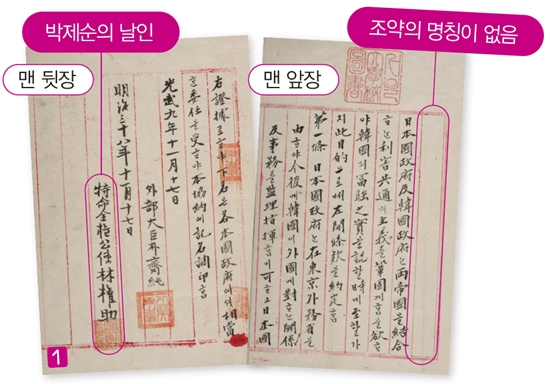 박제순의 날인
조약의 명칭이 없음
맨 뒷장
맨 앞장
右證據로ᄒᆞ야下名은各本國政府에셔相當
ᄒᆞᆫ委任을受ᄒᆞ야本協約에記名調印ᄒᆞᆷ
光武九年十一月十七日
外部大臣朴齊純
明治三十八年十一月十七日
特命全權公使林權助
日本國政府及韓國政府ᄂᆞᆫ兩帝國을結合
ᄒᆞᄂᆞᆫ利害共通의主義를鞏固케ᄒᆞᆷ을欲ᄒᆞ
야韓國의富强之實을認ᄒᆞᆯ時에至ᄒᆞᆯ가
지此目的으로써左開條款을約定ᄒᆞᆷ
第一條 日本國政府ᄂᆞᆫ在東京外務省을
由ᄒᆞ야今後에韓國이外國에對ᄒᆞᄂᆞᆫ關係
及事務를監理指揮ᄒᆞᆷ이可ᄒᆞ고日本國
1